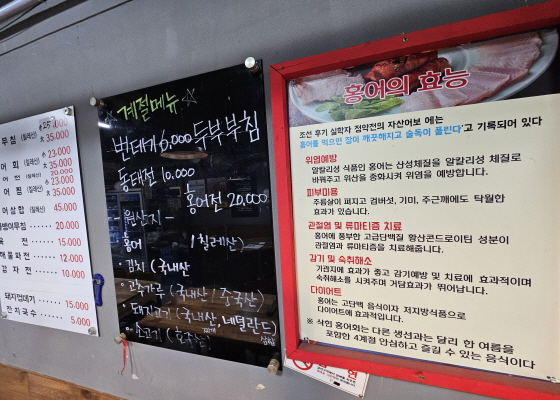 무침 (칠레산) 小25.000
大 35.000
어 회 (칠레산) 小 23.000
大 35.000
어 찜 (칠레산) 小 23.000
大 35.000
어 삼합 (칠레산) 45.000
뱅이무침 20.000
전 15.000
해물파전 12.000
감자전 10.000
돼지껍데기 15.000
잔치국수 5.000
☆계절메뉴☆
번데기 6.000 두부부침
동태전 10.000
홍어전 20,000
- 원산지 -
홍어 (칠레산)
· 김치 (국내산
· 고춧가루 (국내산 / 중국산)
· 돼지고기 (국내산, 네덜란드)
삼겹
· 소고기 (호주산)
홍어의 효능
조선 후기 실학자 정약전의 자산어보 에는
'홍어를 먹으면 장이 깨끗해지고 술독이 풀린다'고 기록되어 있다
위염예방
알칼리성 식품인 홍어는 산성체질을 알칼리성 체질로
바꿔주고 위산을 중화시켜 위염을 예방합니다.
피부미용
주름살이 펴지고 검버섯, 기미, 주근깨에도 탁월한
효과가 있습니다.
관절염 및 류마티즘 치료
홍어에 풍부한 고급단백질 황산콘드로이틴 성분이
관절염과 류마티즘을 치료해줍니다.
감기 및 숙취해소
기관지에 효과가 좋고 감기예방 및 치료에 효과적이며
숙취해소를 시켜주며 거담효과가 뛰어납니다.
다이어트
홍어는 고단백 음식이자 저지방식품으로
다이어트에 효과적입니다.
※ 삭힌 홍어회는 다른 생선과는 달리 한 여름을
포함한 4계절 안심하고 즐길 수 있는 음식이다